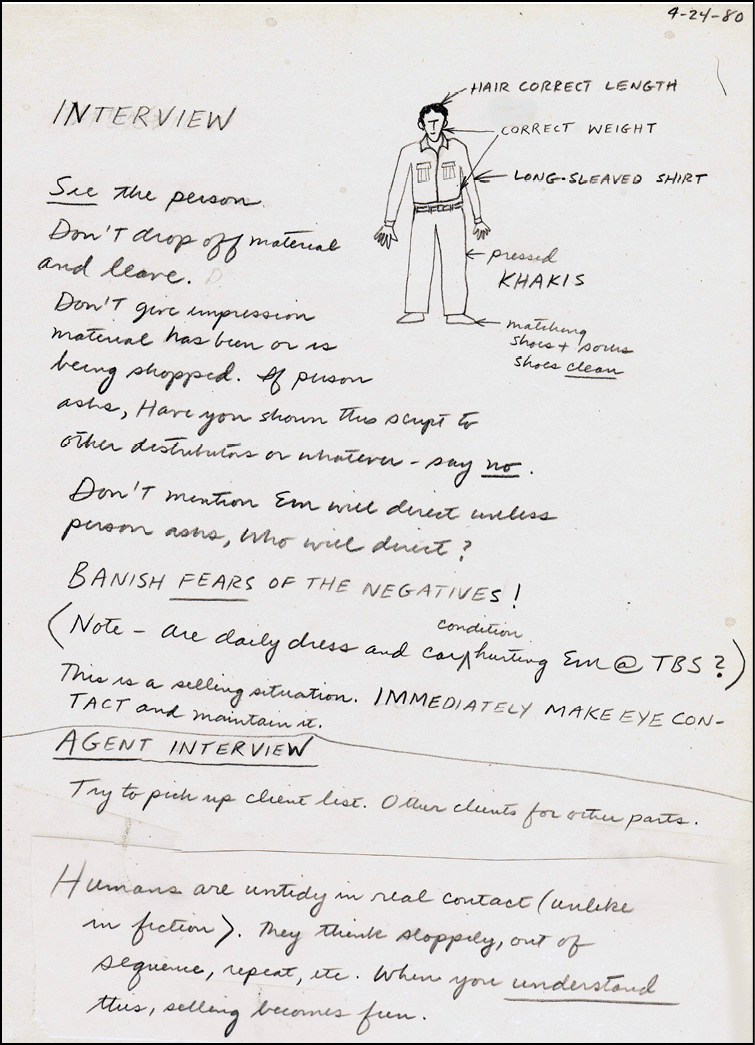 4-24-80
INTERVIEW
HAIR CORRECT LENGTH
CORRECT WEIGHT
LONG-SLEAVED SHIRT
pressed
KHAKIS
matching
shoes + socks
shoes clean
See the person.
Don't drop off material
and leave.
Don't give impression
material has been or is
being shopped. If person
asks, Have you shown this script to
other distributors or whatever - say no.
Don't mention Em will direct unless
person asks, Who will direct?
BANISH FEARS OF THE NEGATIVES!
condition
(Note - are daily dress and car hurting Em @ TBS?)
This is a selling situation. IMMEDIATELY MAKE EYE CON-
TACT and maintain it.
AGENT INTERVIEW
Try to pick up client list. Other clients for other parts.
Humans are untidy in real contact (unlike
in fiction). They think sloppily, out of
sequence, repeat, etc. When you understand
this, selling becomes fun.